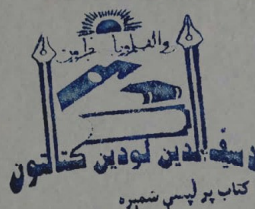 والقلم وما يسطرون
د سیف الدین لودین کتابتون
کتاب پرلپسې نمبره